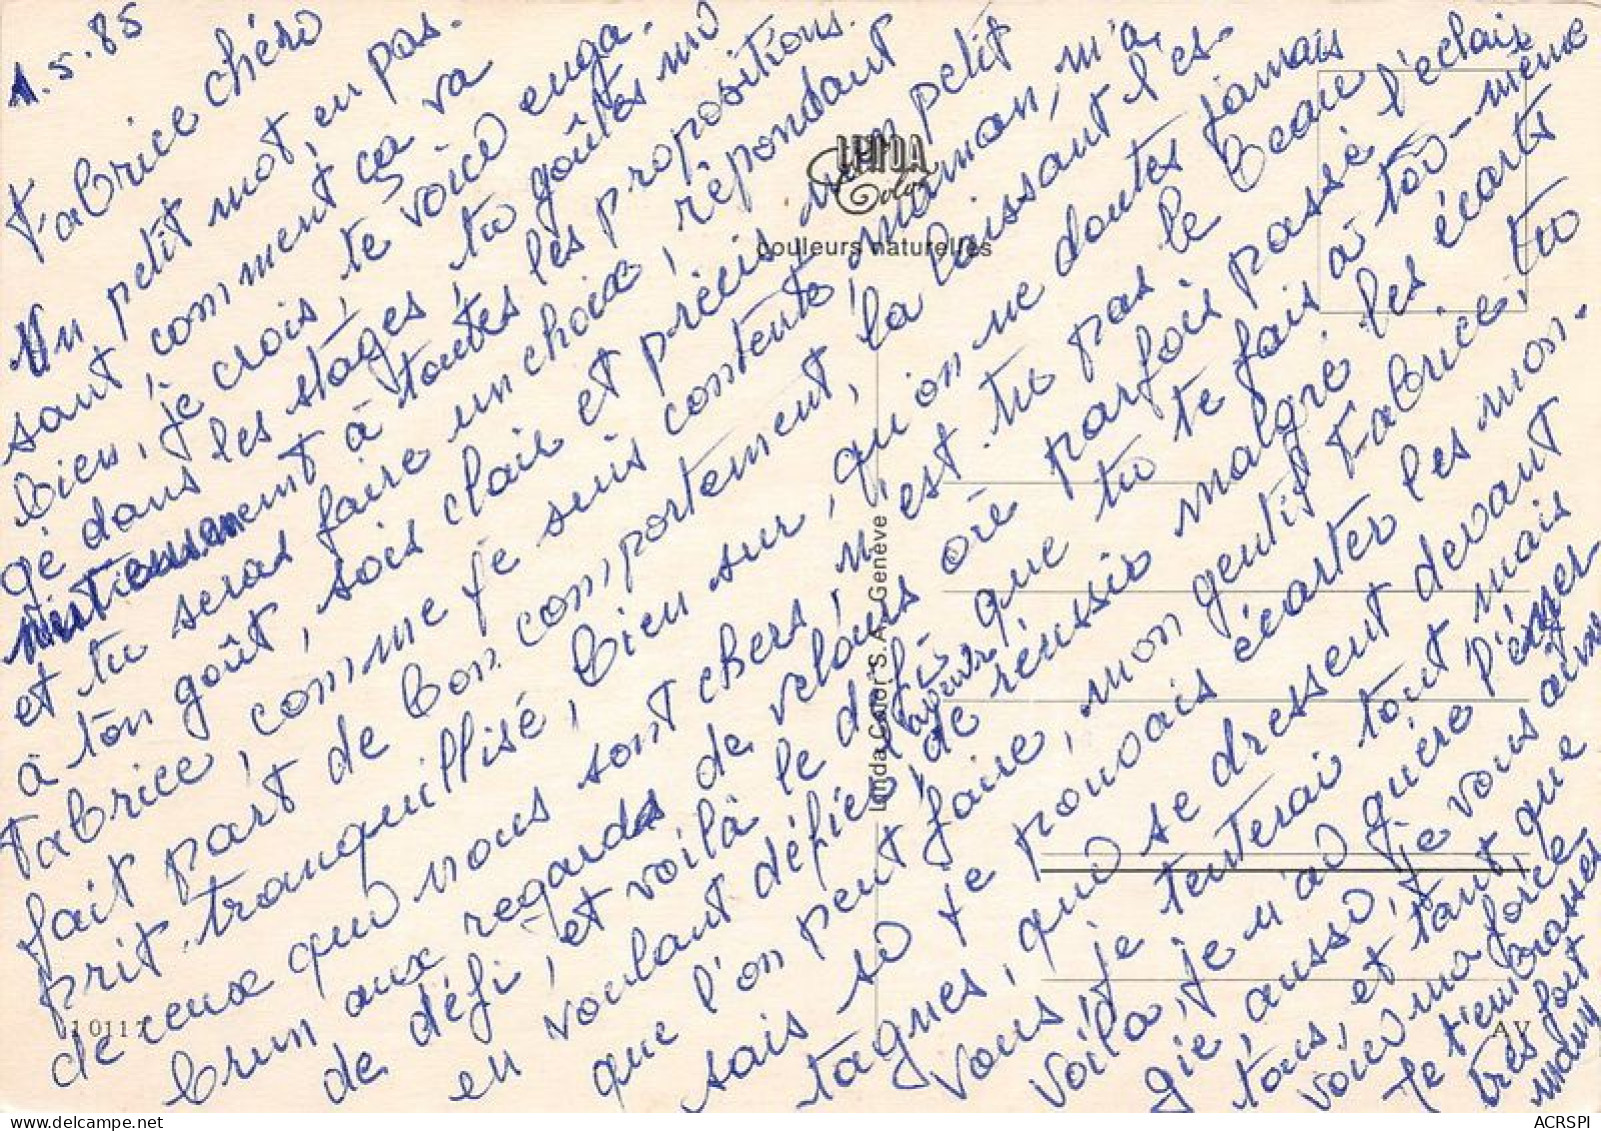 1.5.85
Fabrice chéri
Un petit mot, en pas-
sant comment ça va
bien, je crois, te voici enga-
gé dans les stages, tu goûtes mi
nutieusement à toutes les propositions.
et tu seras faire un choix, répondant
à ton goût, sois clair et précis mon petit
Fabrice, comme je suis contente maman, m'a
fait part de bon comportement, la laissant l'es-
prit tranquillisé, bien sur, qu'on ne doutes jamais
de ceux qui nous sont chers, n'est-tu pas le beau
brun aux regards de velours oré parfois passé l'éclair
de défi, et voilà le défi que tu te fais à toi-même
en voulant défier l'avenir, de réussir malgré les écarts
que l'on peut faire, mon gentil Fabrice, tu
sais si je pouvais écarter les mon-
tagnes, qui se dressent devant
vous, je tenterai tout mais
voilà, je n'ai guère l'éner
gie, aussi, je vous aime
tous, et tant, que
voici ma force
Je t'embrasse
très fort
mamy
LINDA
Color
couleurs naturelles
Linda Color S.A. Genève
10117
AV
ACRSPI